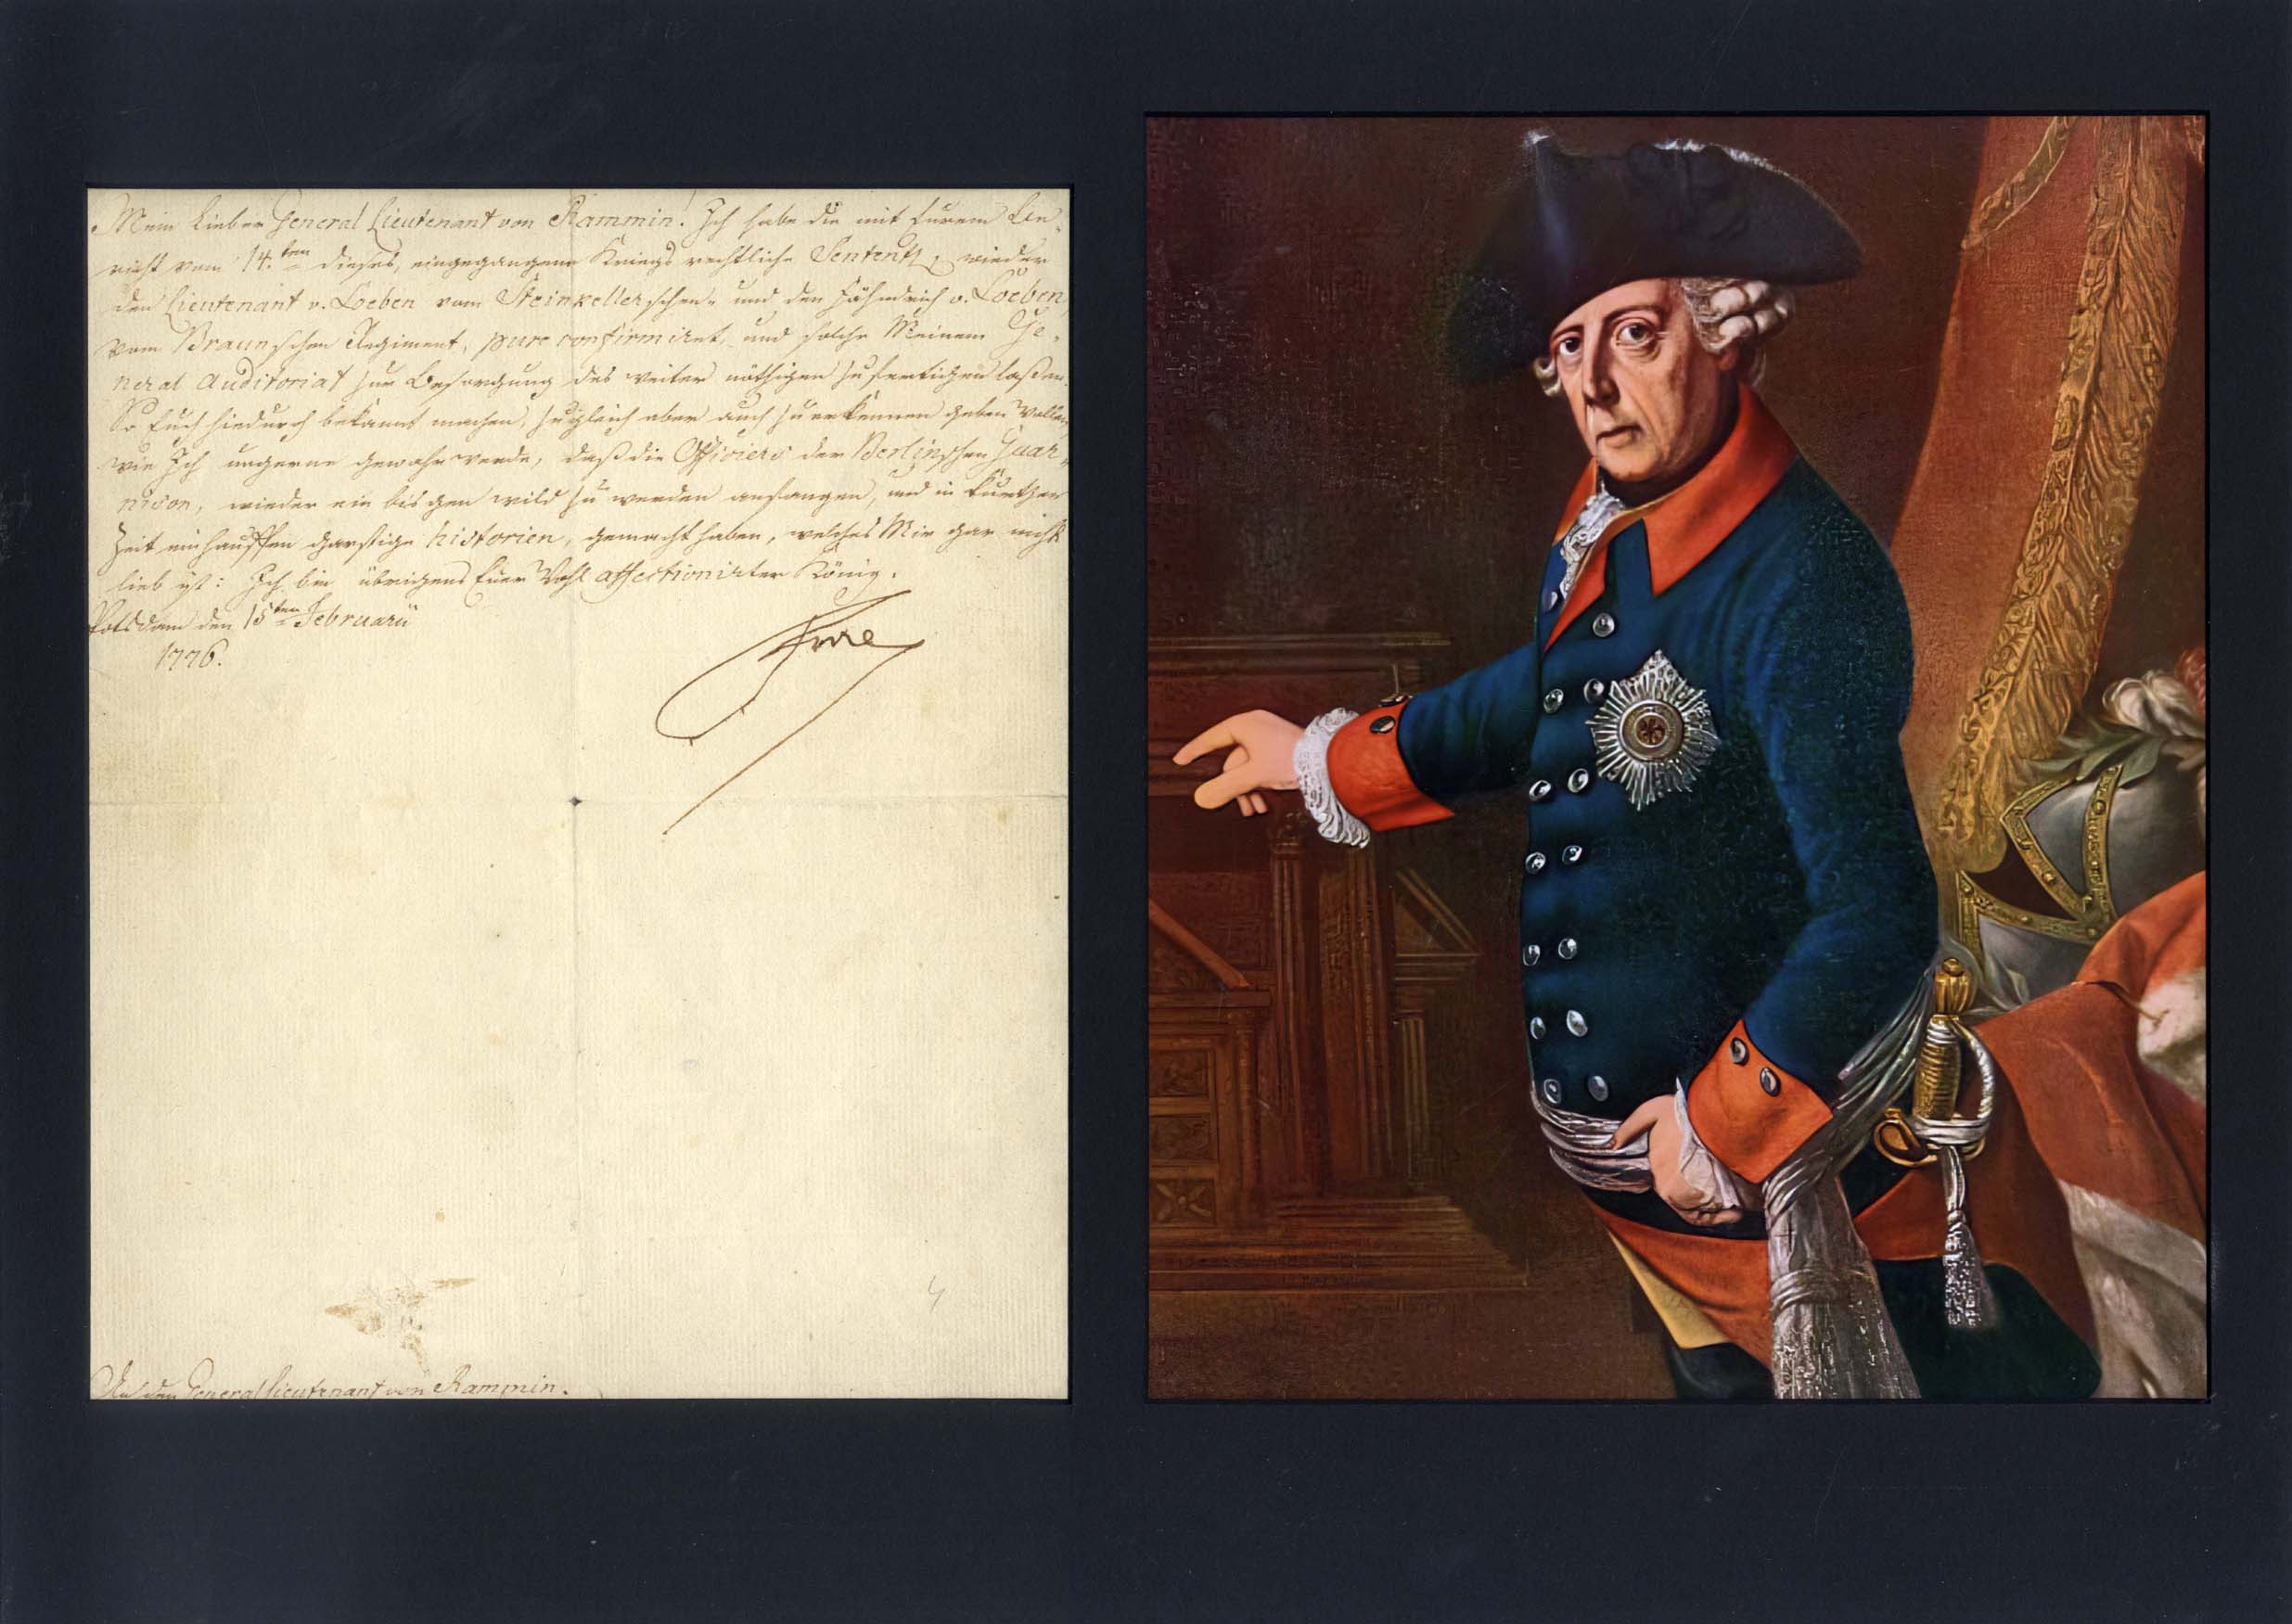 Mein lieber General Lieutenant von Rammin! Ich habe die mit Eurem Be-
richt vom 14.ten dieses, eingegangene Kriegs rechtliche Sententz, wieder
den Lieutenant v. Loeben vom Steinkellerschen- und den Fähndrich v. Loeben,
vom Braunschen Regiment, pure confirmiret, und solche Meinem Ge-
neral Auditoriat zur Besorgung des weiter nöthigen zufertigen laßen.
So Euch hiedurch bekannt machen, zugleich aber auch zu erkennen geben wollen,
wie Ich ungerne gewahr werde, daß die Officiers der Berlinschen Guar-
nison, wieder ein bisgen wild zu werden anfangen, und in kurtzer
Zeit ein hauffen garstige historien, gemacht haben, welches Mir gar nicht
lieb ist: Ich bin übrigens Euer Wohl affectionirter König.
Potsdam den 15ten Februarii
1776.
An den General Lieutenant von Rammin.